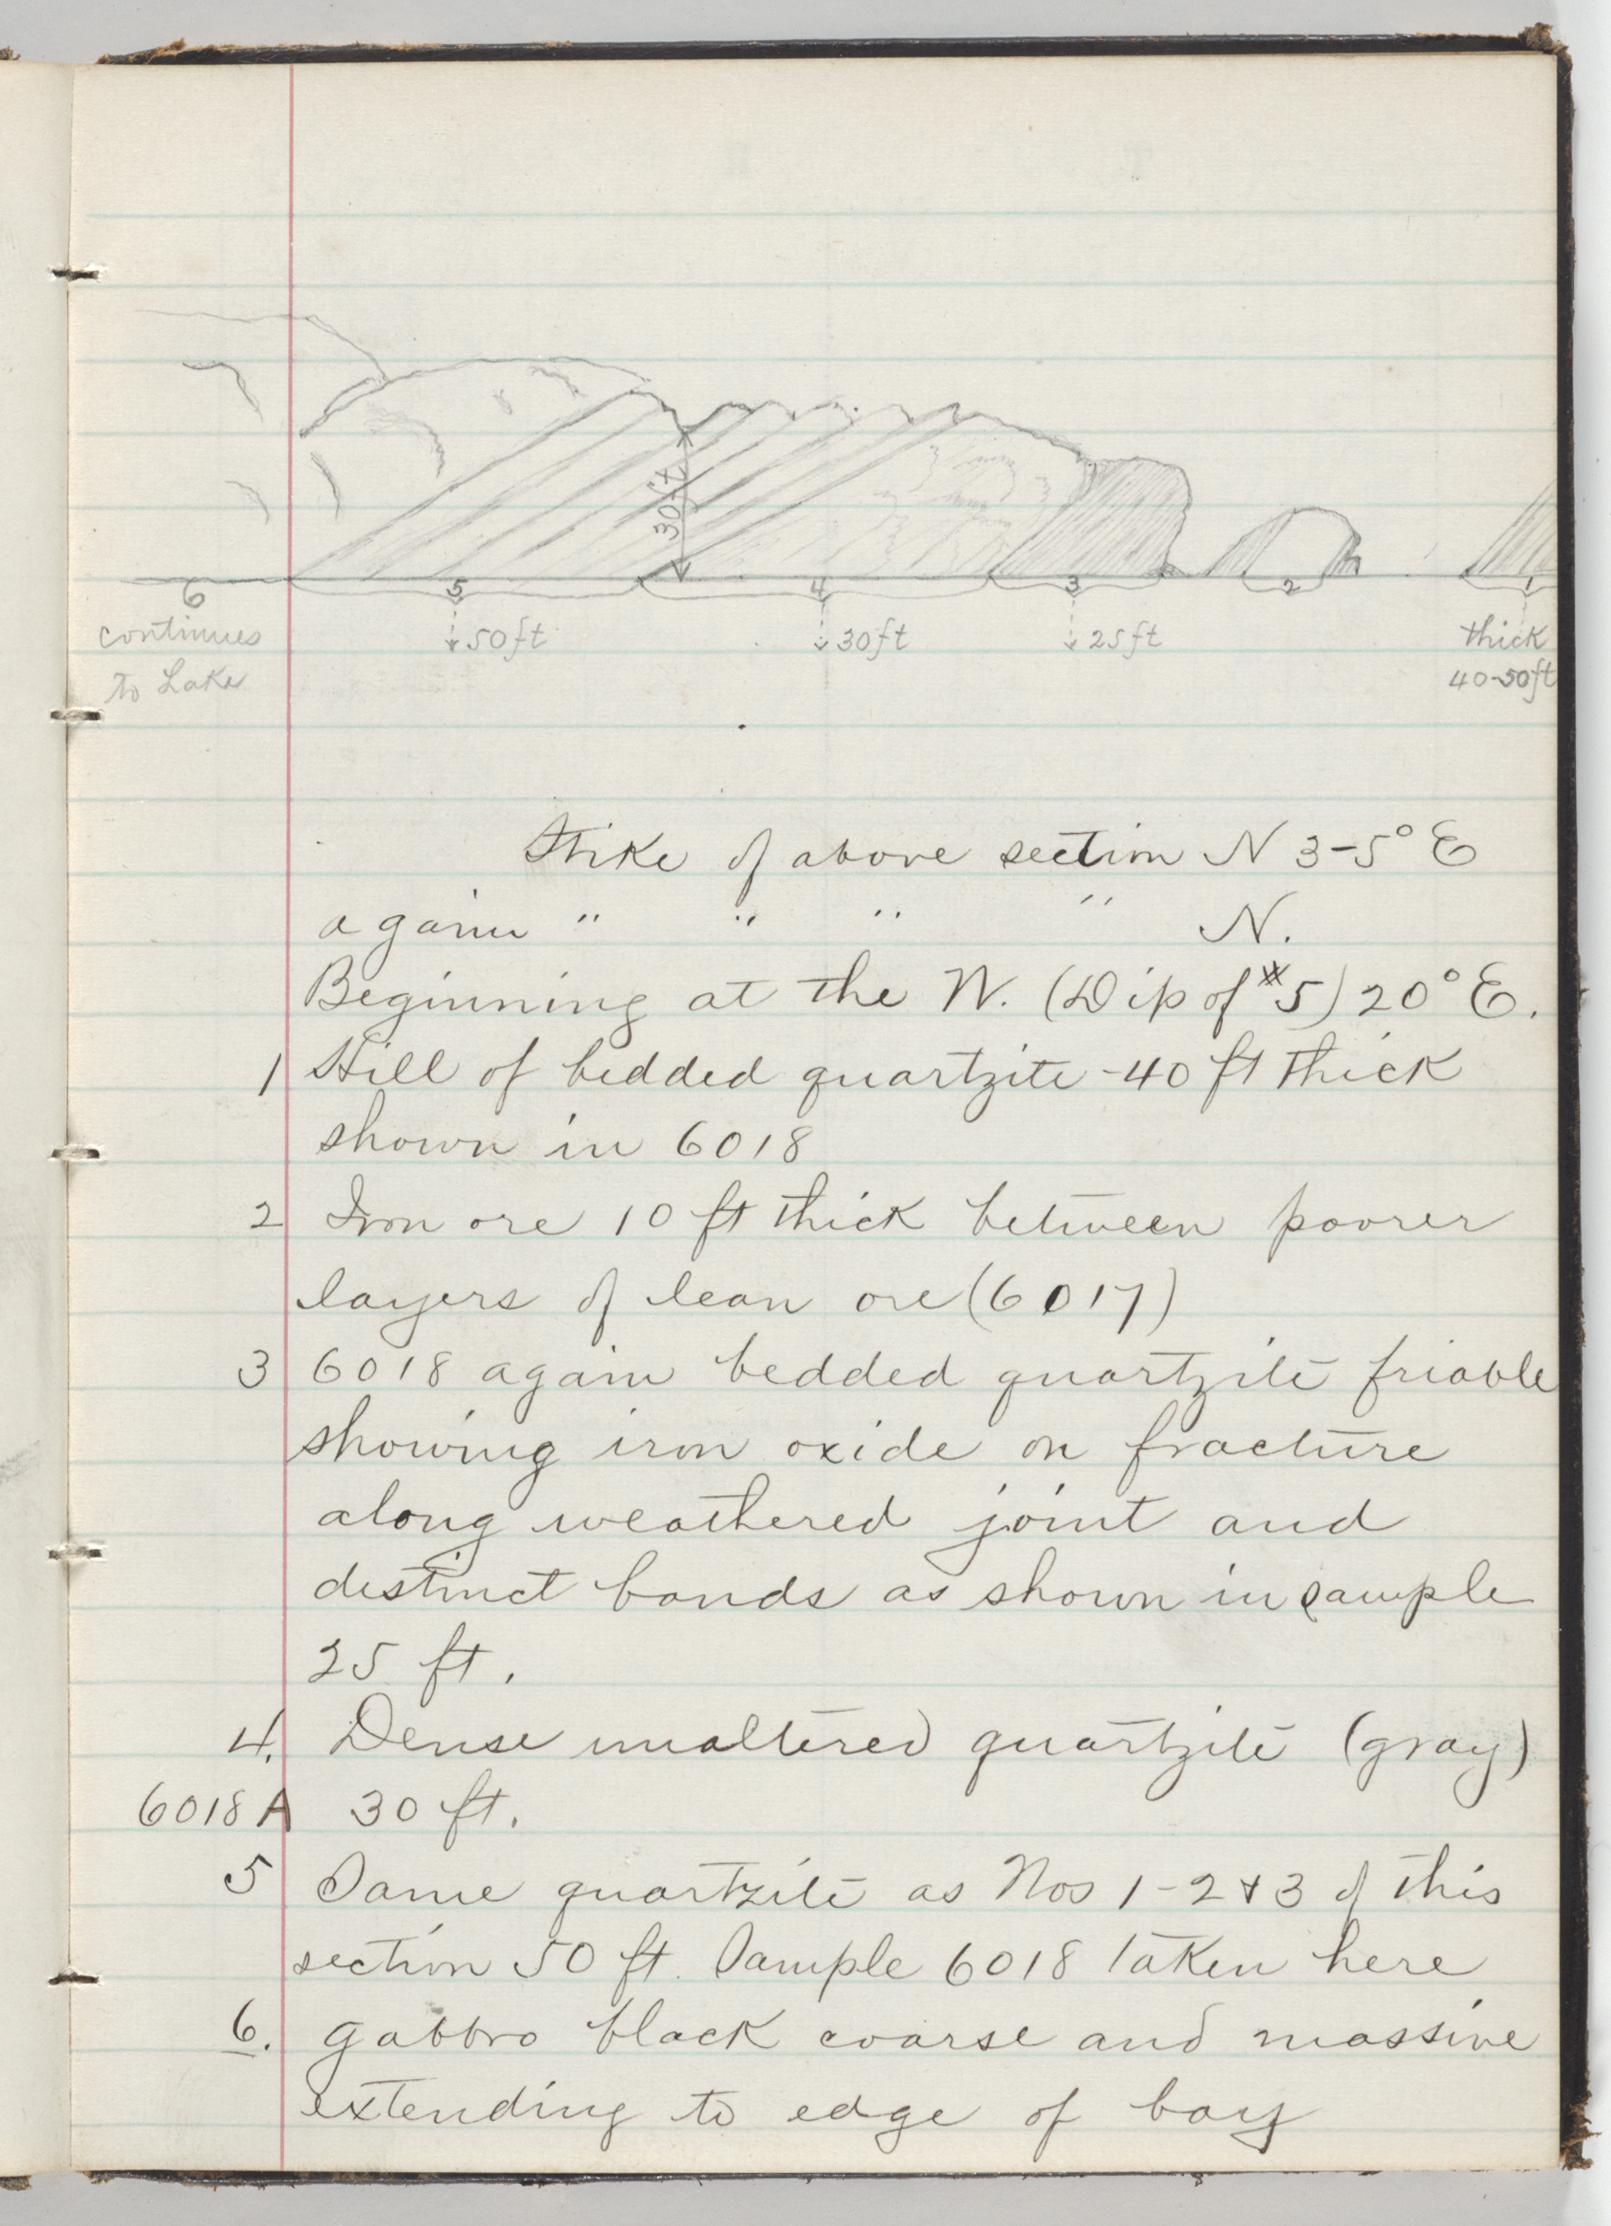 30ft
6 5 4 3 2 1
continues 50ft 30ft 25ft thick
to Lake 40-50ft
Strike of above section N 3-5° E
again " " " " N.
Beginning at the W. (Dip of #5) 20° E.
1 Hill of bedded quartzite - 40 ft thick
shown in 6018
2 Iron ore 10 ft thick between poorer
layers of lean ore (6017)
3 6018 again bedded quartzite friable
showing iron oxide on fracture
along weathered joint and
distinct bands as shown in sample
25 ft.
4. Dense unaltered quartzite (gray)
6018 A 30 ft.
5 Same quartzite as Nos 1-2 & 3 of this
section 50 ft. Sample 6018 taken here
6. gabbro black coarse and massive
extending to edge of bay